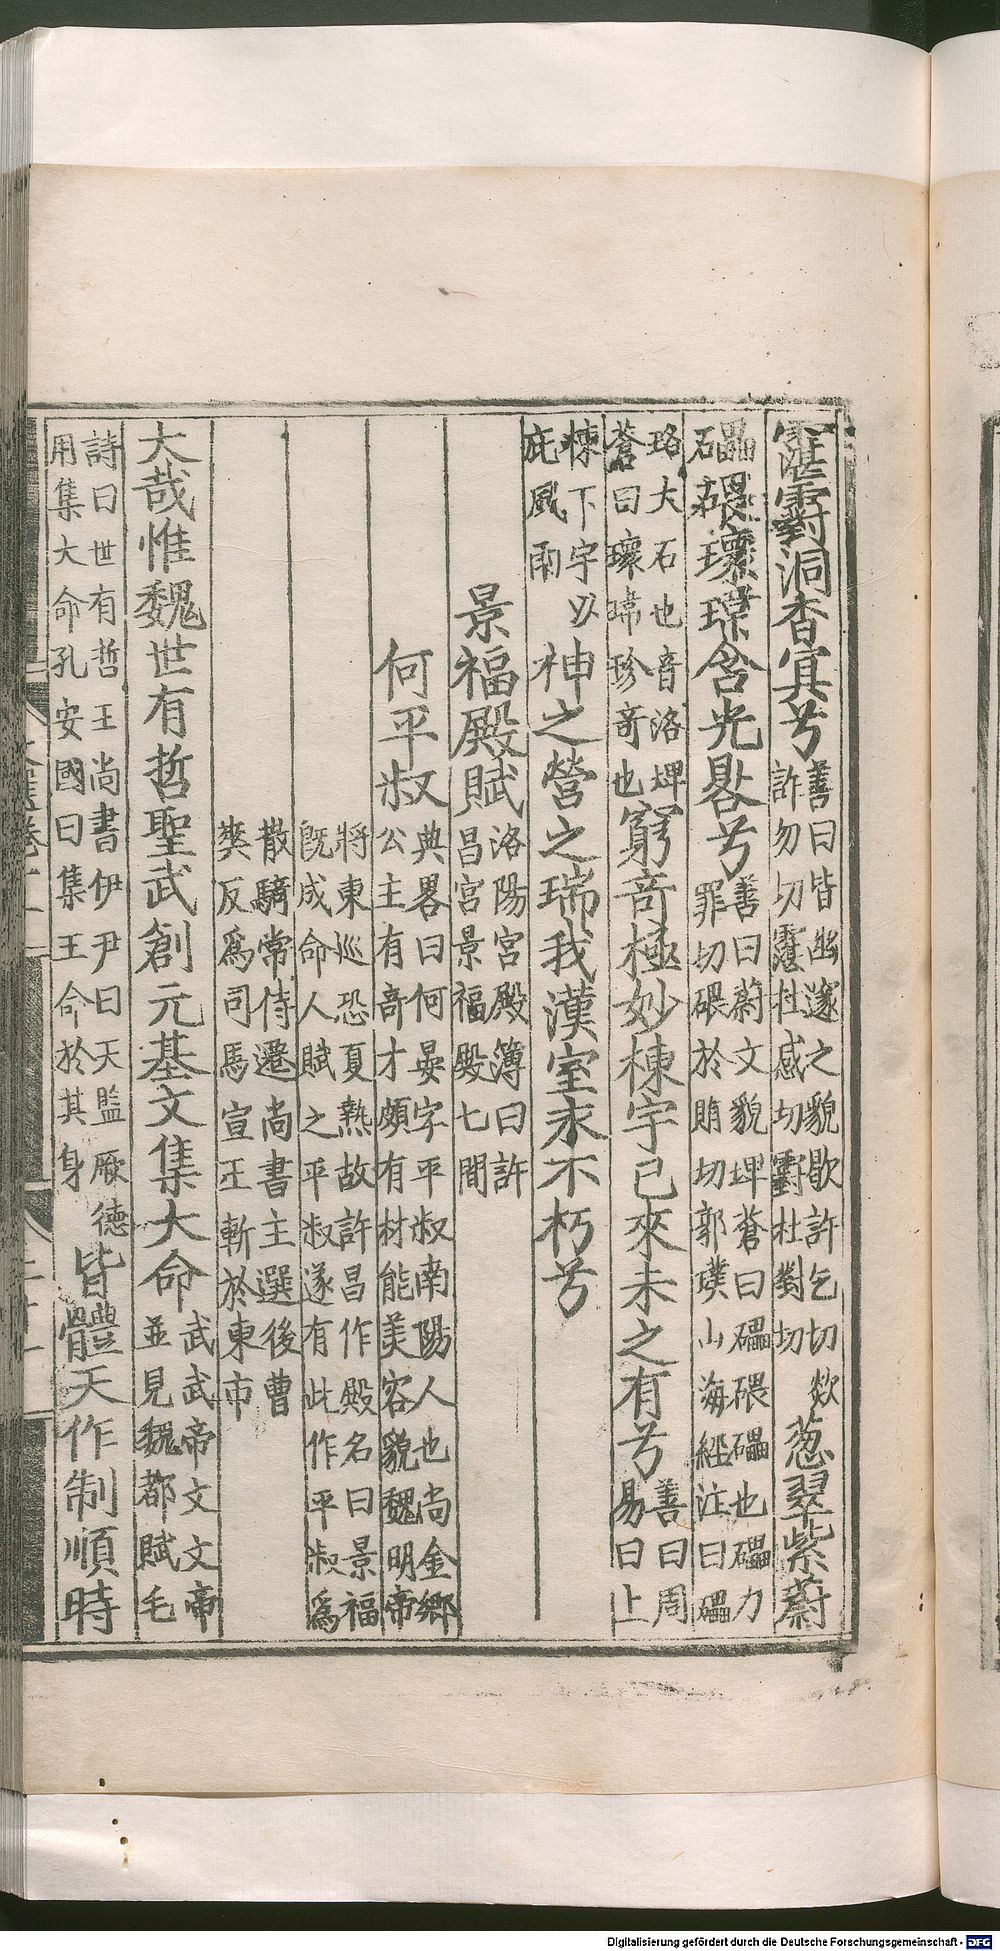 霮䨴洞杳㝠兮善曰皆幽邃之貌歇許乞切欻許勿切霮杜感切䨴杜對切葱翠紫蔚
礧碨瓌瑋含光晷兮善曰蔚文貌埤蒼曰礧碨礧也礧力罪切碨於賄切郭璞山海經注曰礧
硌大石也音洛埤蒼曰瓌瑋珍竒也窮竒極妙棟宇已來未之有兮善曰周易曰上
棟下宇以庇風雨神之營之瑞我漢室永不朽兮
景福殿賦洛陽宮殿簿曰許昌宮景福殿七間
何平叔典畧曰何晏字平叔南陽人也尚金鄉公主有竒才頗有材能美容貌魏明帝
將東巡恐夏熱故許昌作殿名曰景福旣成命人賦之平叔遂有此作平叔爲
散騎常侍遷尚書主選後曹爽反爲司馬宣王斬於東市
大哉惟魏世有哲聖武創元基文集大命武武帝文文帝並見魏都賦毛
詩曰世有哲王尚書伊尹曰天監厥德用集大命孔安國曰集王命於其身皆體天作制順時
Digitalisierung gefördert durch die Deutsche Forschungsgemeinschaft - DFG